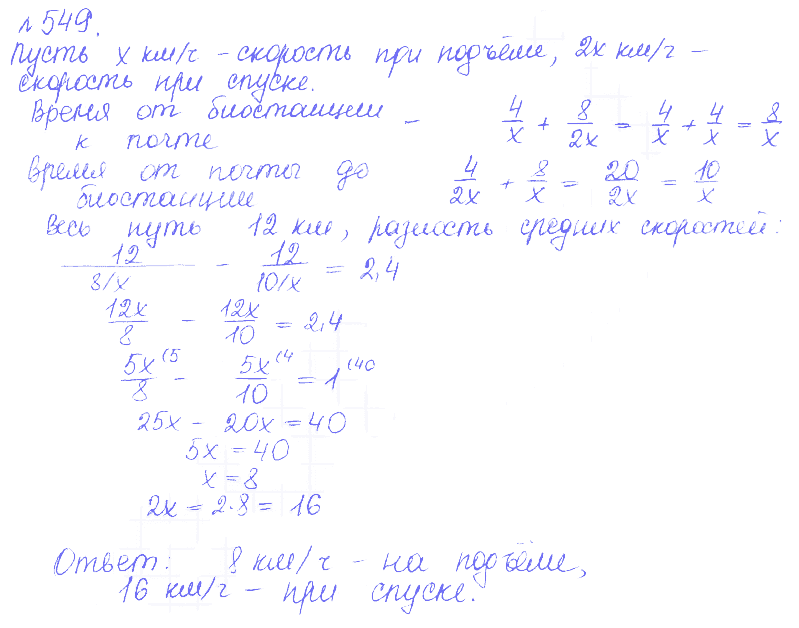 №549.
Пусть x км/ч - скорость при подъёме, 2x км/г -
скорость при спуске.
Время от биостанции к почте - 4/x + 8/2x = 4/x + 4/x = 8/x
Время от почты до биостанции 4/2x + 8/x = 20/2x = 10/x
Весь путь 12 км, разность средних скоростей:
12/(8/x) - 12/(10/x) = 2,4
12x/8 - 12x/10 = 2,4
5x/8 (5 - 5x/10 (4 = 1 (40
25x - 20x = 40
5x = 40
x = 8
2x = 2·8 = 16
Ответ: 8 км/ч - на подъёме,
16 км/г - при спуске.